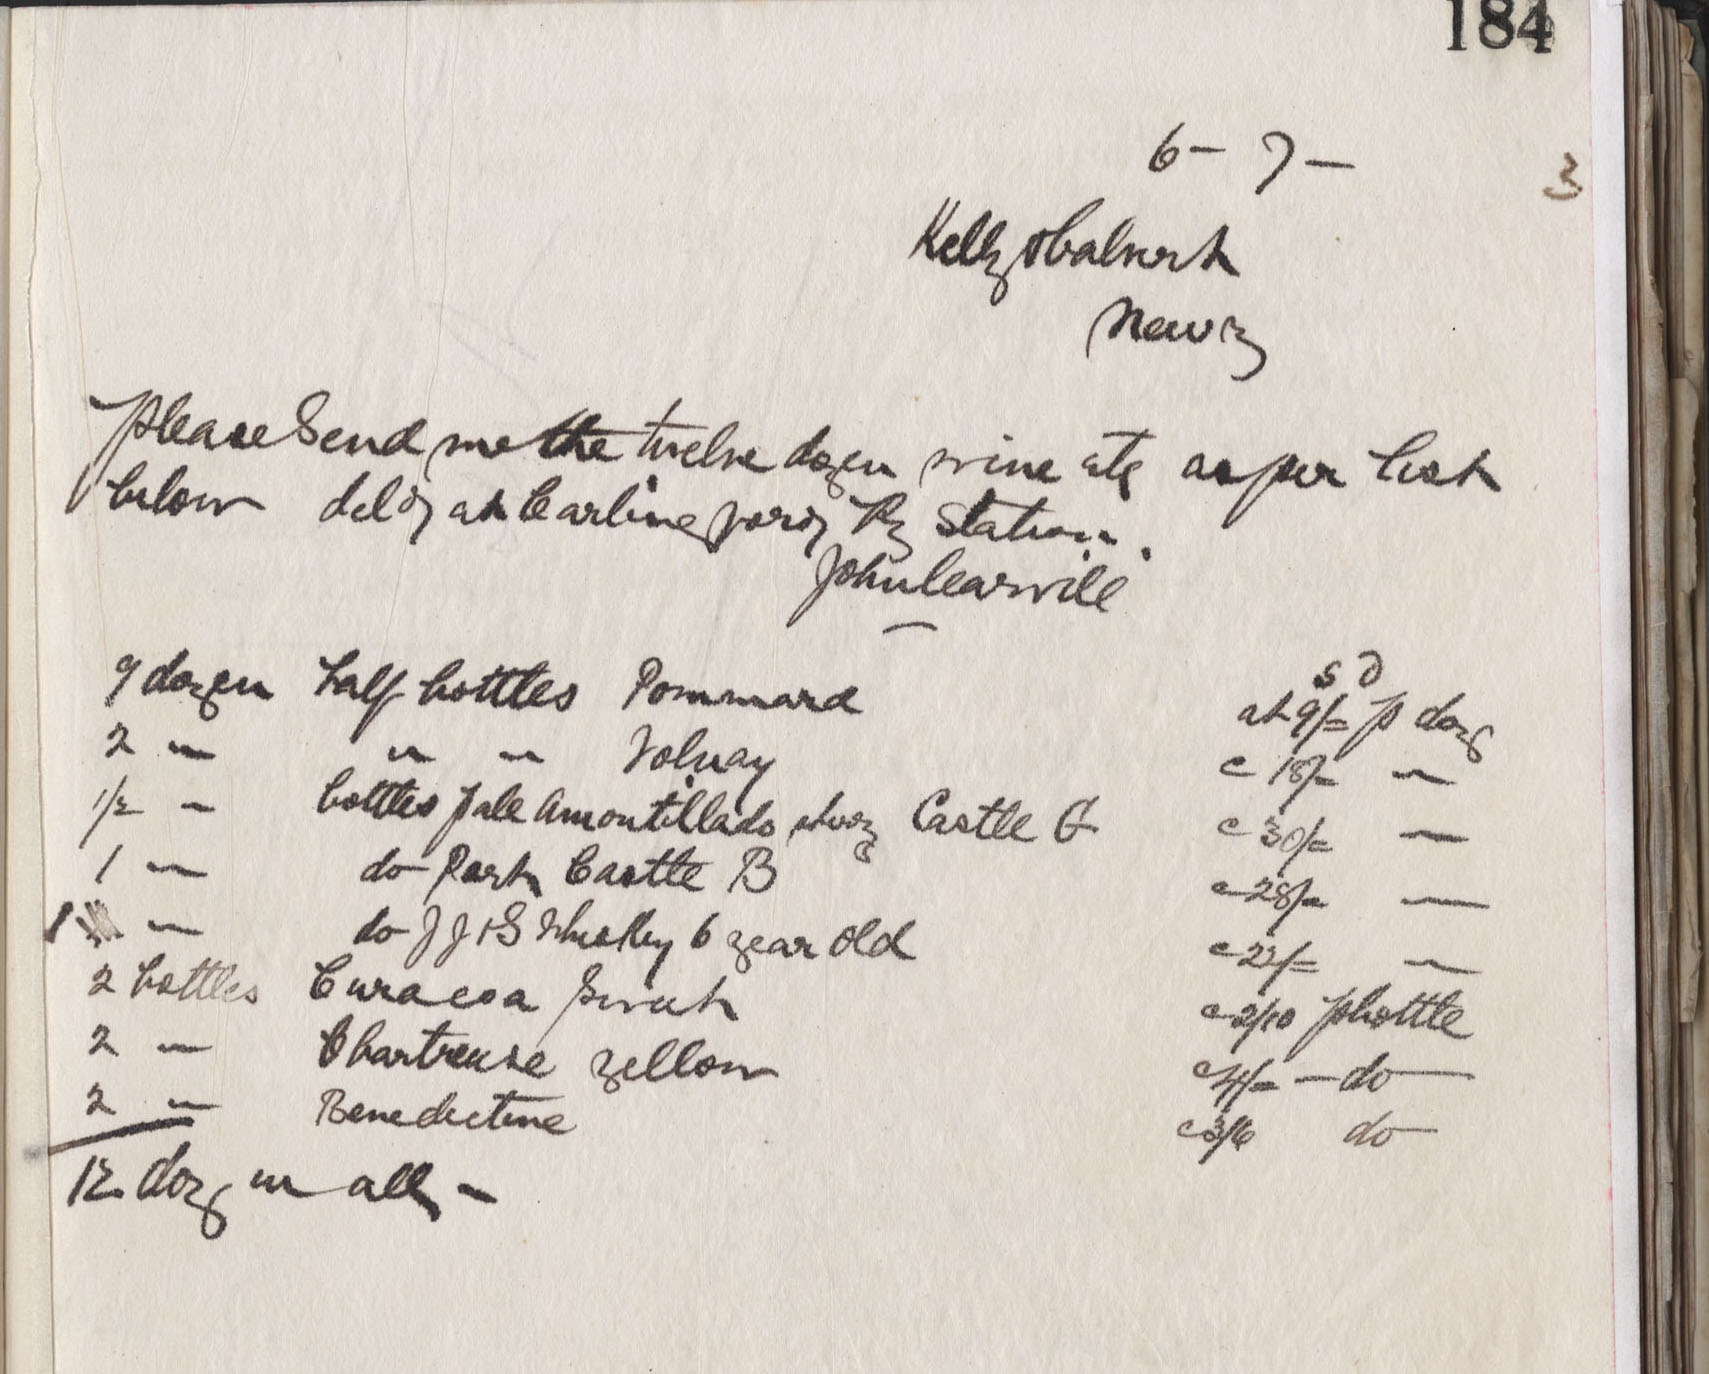 184
6 - 7 -
3
Kelly
Newry
Please Send me the twelve dozen wine etc as per list
below deld at Carlingford Ry Station.
John Carvill
s d
7 dozen half bottles Pommard at 9/= p doz
2 " " " Volnay " 18/= "
1/2 " bottles pale Amontillado sherry Castle G " 30/= "
1 " do Port Castle B " 28/= "
1 " do JJ&S Whiskey 6 year old " 22/= "
2 bottles Curacoa " 2/10 p bottle
2 " Chartreuse yellow " 4/= - do -
2 " Benedictine " 3/6 do
12 doz in all -